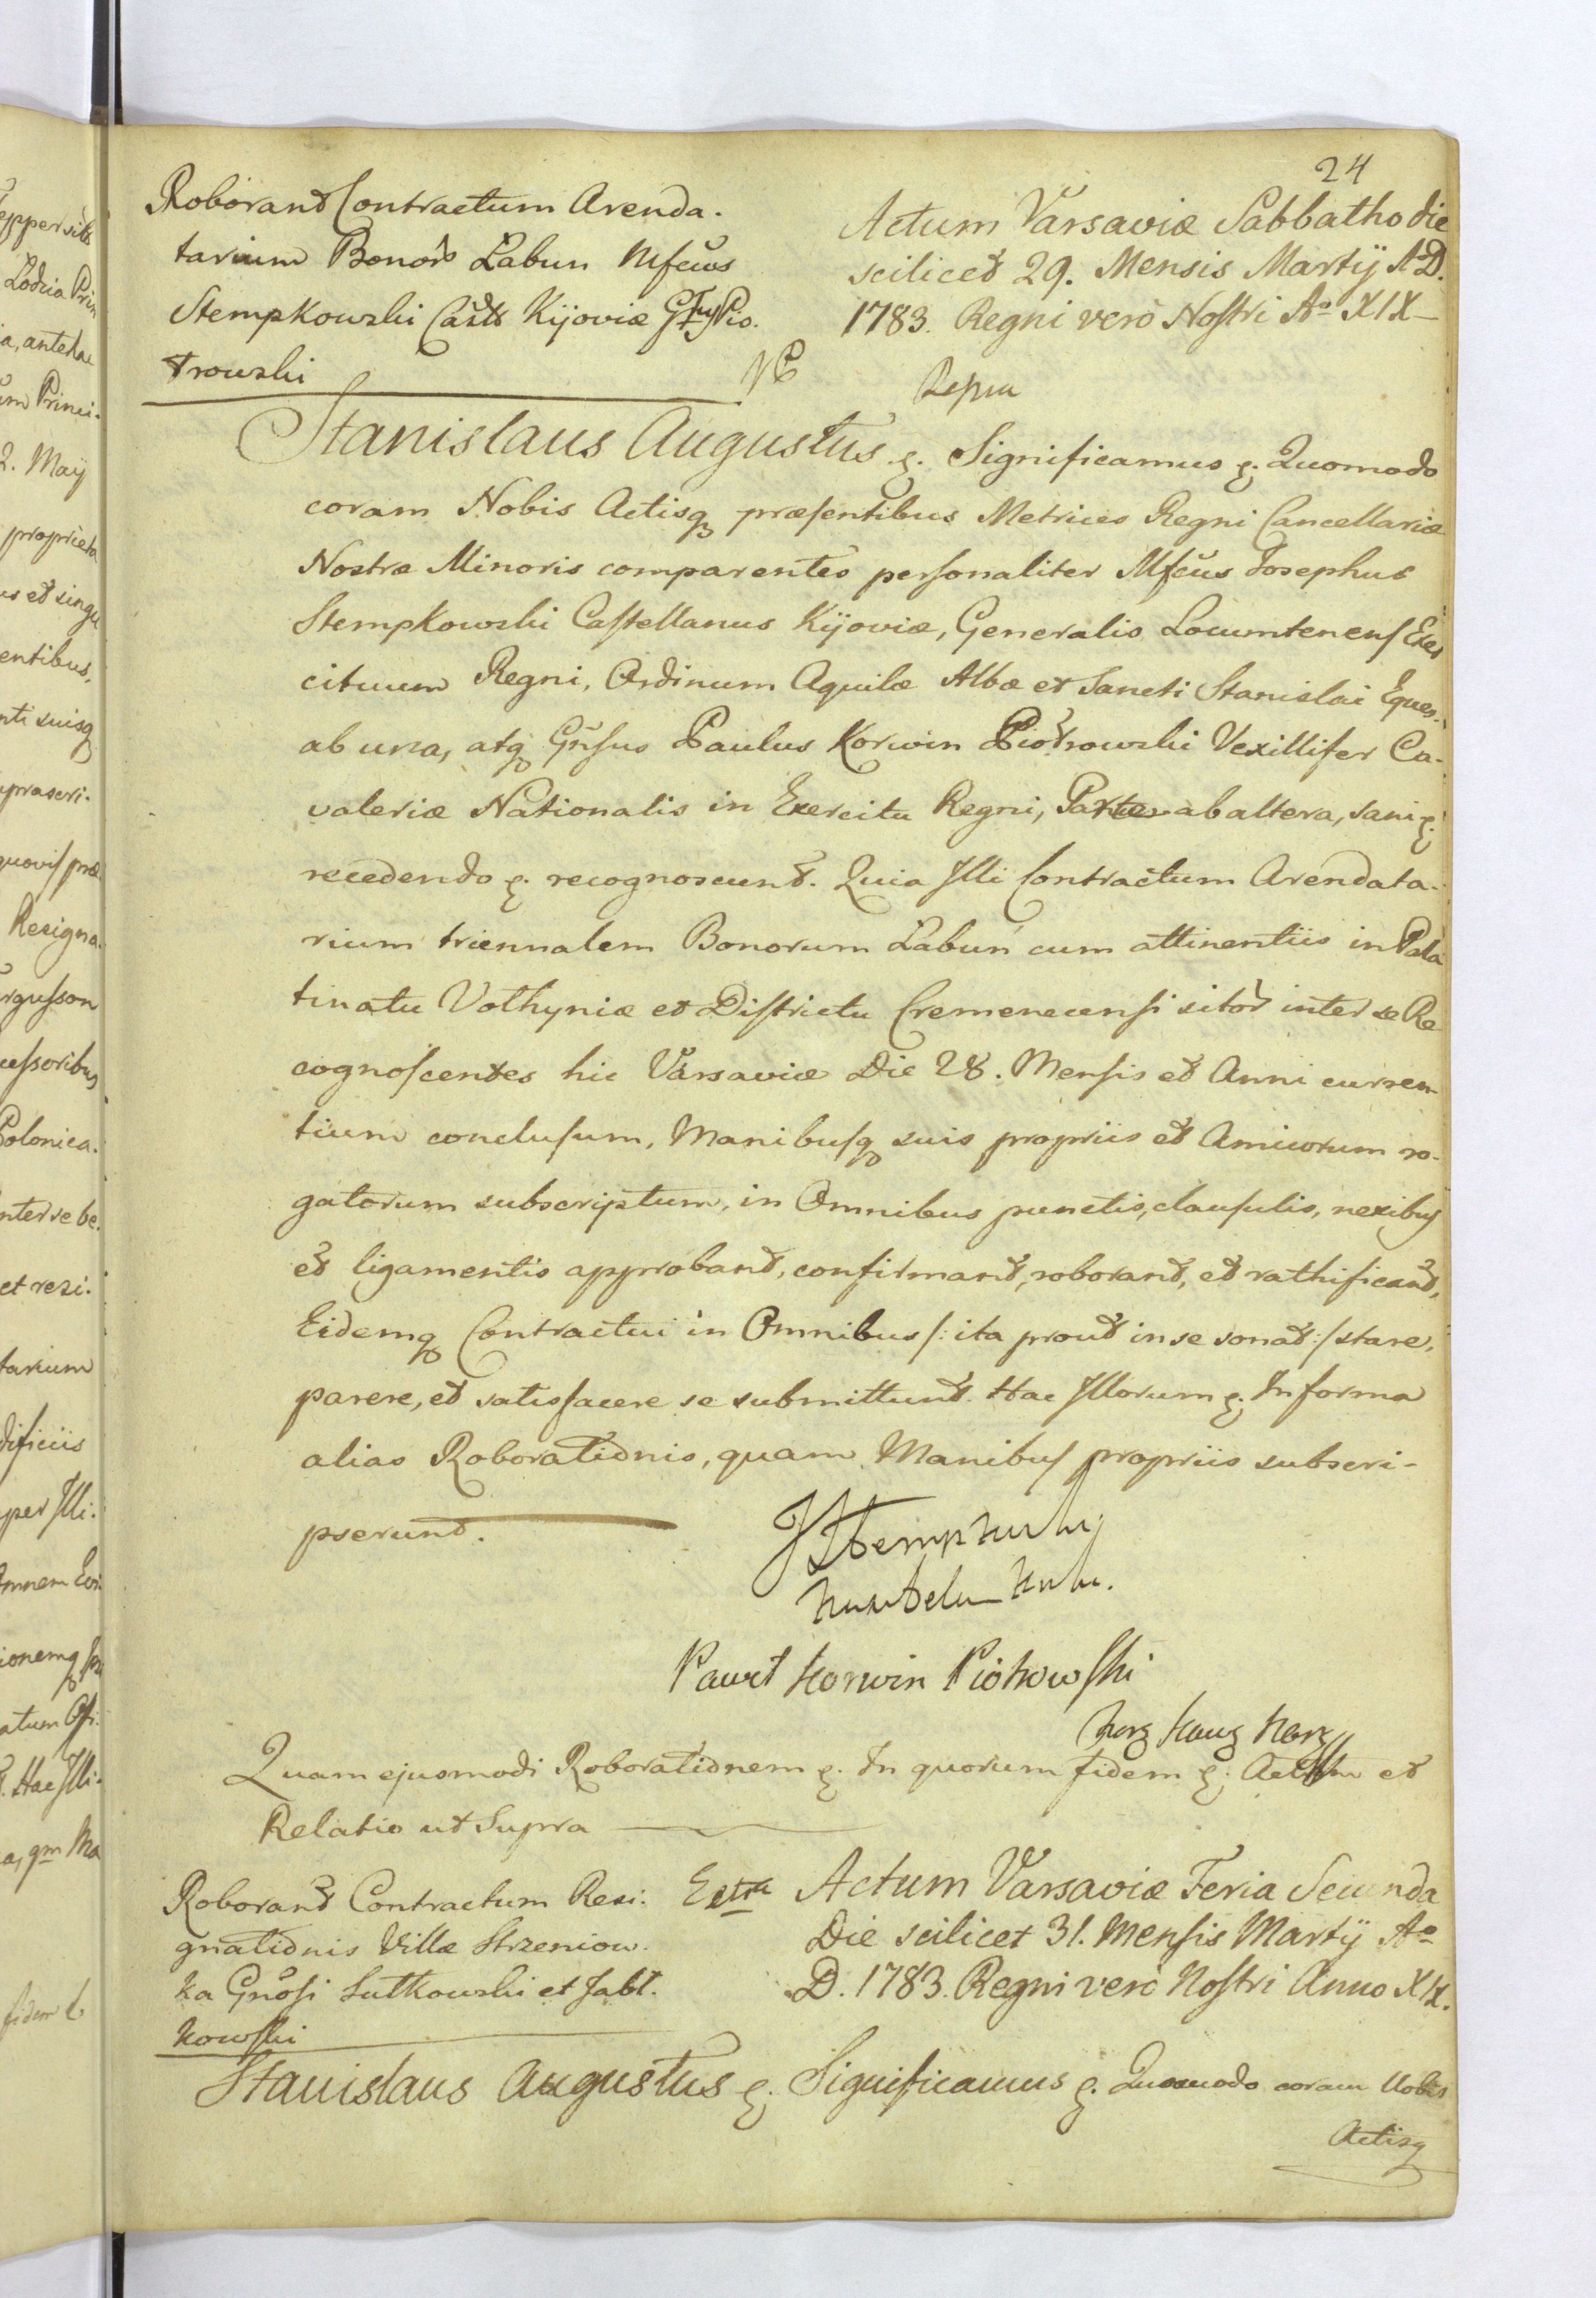 24
Roborant Contractum Arenda.
tarium Bonor̃ Łabun Mfcus
Stempkowski Castts Kijoviæ G Pio.
trowski
Actum Varsaviæ Sabbatho die
scilicet 29. Mensis Martij A D.
1783. Regni vero Nostri Aº XIX
Stanislaus Augustus &. Significamus &. Quomodo
coram Nobis Actisq præsentibus Metrices Regni Cancellariæ
Nostræ Minoris comparentes personaliter Mfcus Josephus
Stempkowski Castellanus Kijoviæ, Generalis Locumtenens Exer
cituum Regni, Ordinum Aquilæ Albæ et Sancti Stanislai Eques.
ab una, atq Gnsus Paulus Korwin Piotrowski Vexillifer Ca-
valeriæ Nationalis in Exercitu Regni, Partes ab altera, sani &.
recedendo &. recognoscunt. Quia Illi Contractum Arendata-
rium triennalem Bonorum Łabuń cum attinentiis in Pala
tinatu Volhyniæ et Districtu Cremenecensi sitor̃ inter se Re
cognoscentes hic Varsaviæ Die 28. Mensis et Anni curren-
tium conclusum, Manibusq suis propriis et Amicorum ro-
gatorum subscriptum, in Omnibus punctis, clausulis, nexibus
et ligamentis approbant, confirmant, roborant, et rathificant,
Eidemq Contractui in Omnibus /: ita prout in se sonat :/ stare,
parere, et satisfacere se submittunt. Hac Illorum &. In forma
alias Roborationis, quam Manibus propriis subscri-
pserunt.
JStempkowski
Pawet Korwin Piotrowski
Quam ejusmodi Roborationem &. In quorum fidem &. Actum et
Relatio ut Supra
Roborant Contractum Resi.
gnationis Villæ Strzeniow.
ka Gnosi Sutkowski et Jabł.
kowski
Actum Varsaviæ Feria Secunda
Die scilicet 31. Mensis Martij Aº
D. 1783. Regni vero Nostri Anno XIX.
Stanislaus Augustus &. Significamus &. Quomodo coram Nobis
Actisq